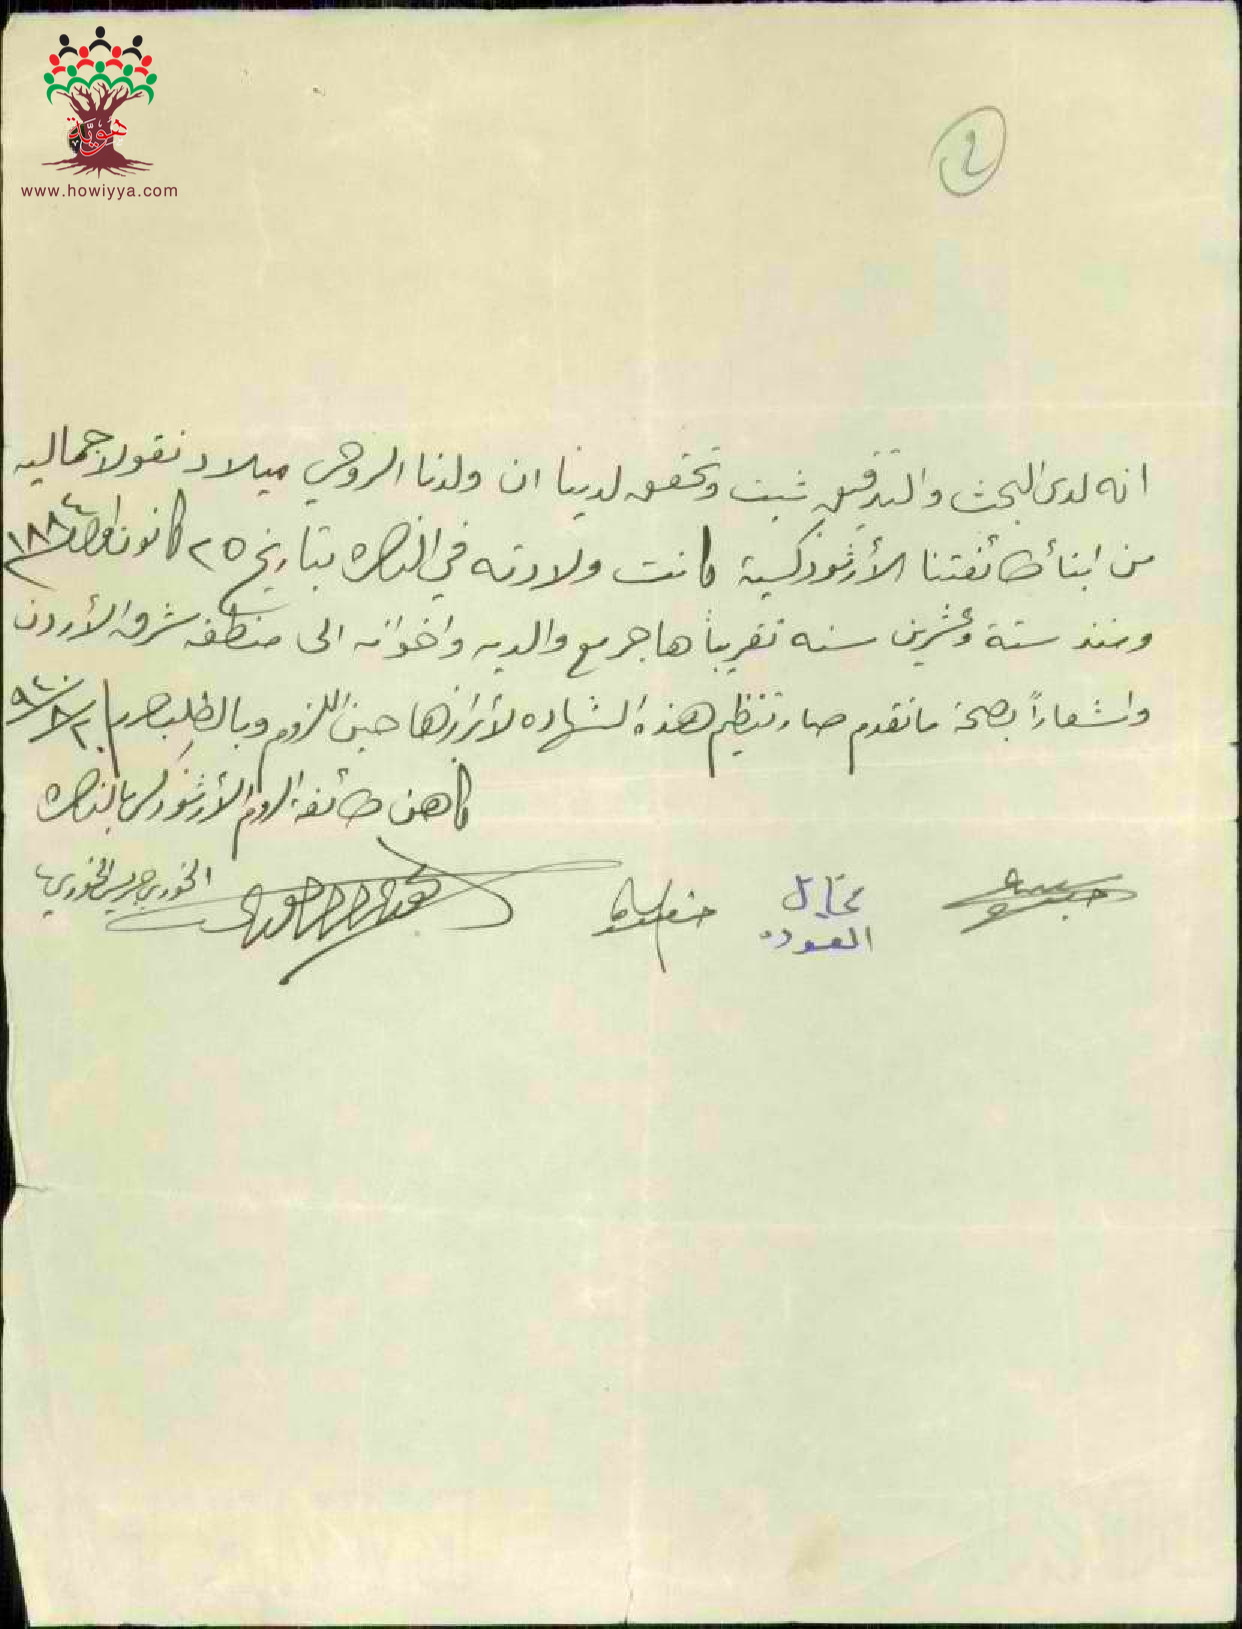 هوية
www.howiyya.com
٢
انه لدى البحث والتدقيق ثبت وتحقق لدينا ان ولدنا الروحي ميلاد نقولا جماليه
من ابناء طائفتنا الأرثوذكسية كانت ولادته في الناصره بتاريخ ٢٥ كانون اول ١٨٨٤
ومنذ ستة وعشرين سنه تقريباً هاجر مع والديه واخوانه الى منطقة شرق الأردن
واشعاراً بصحة ما تقدم صار تنظيم هذه الشهاده لأبرازها حين اللزوم وبالطلب
كاهن طائفة الروم الأرثوذكس بالناصره
الخوري جريس الخوري
مخايل
العوده